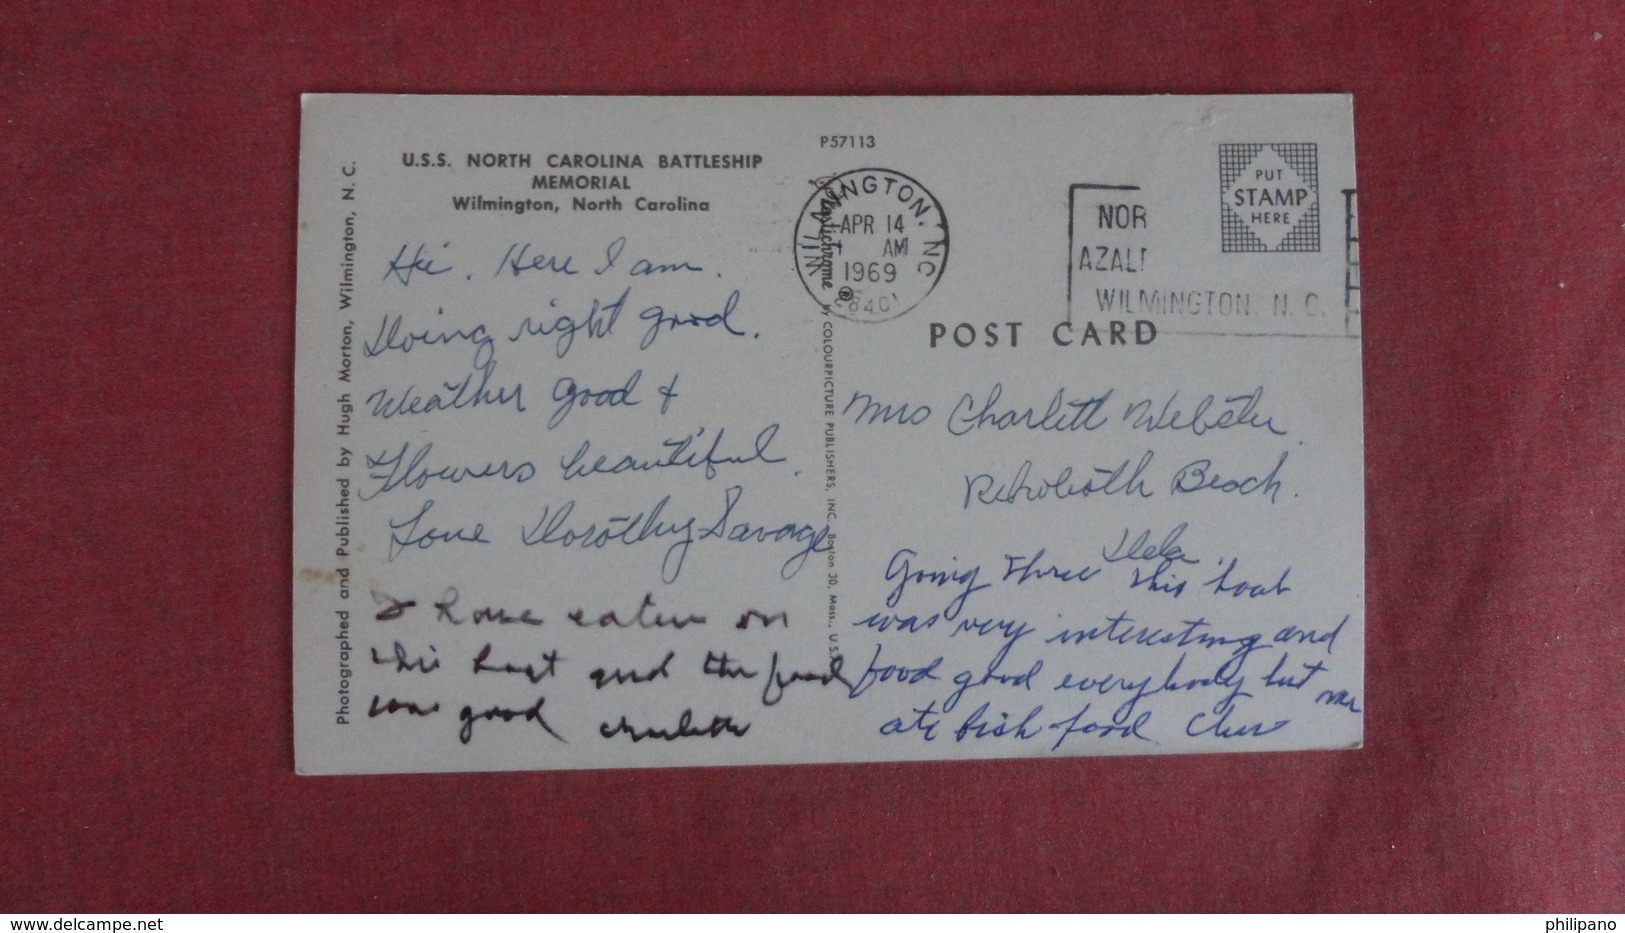 P57113
U.S.S. NORTH CAROLINA BATTLESHIP
MEMORIAL
Wilmington, North Carolina
Photographed and Published by Hugh Morton, Wilmington, N. C.
Hi. Here I am.
Doing right good.
Weather good +
Flowers beautiful.
Love Dorothy Savage
I have eaten on
this boat and the food
was good Charlotte
Plastichrome ® by COLOURPICTURE PUBLISHERS, INC. Boston 30, Mass., U.S.A.
WILMINGTON, NC
APR 14
AM
1969
NOR
AZAL
WILMINGTON, N. C.
PUT
STAMP
HERE
POST CARD
Mrs Charlott Webster
Rehoboth Beach.
Dela
Going Three this boat
was very interesting and
food good everybody but me
ate fish food
www.delcampe.net
philipano